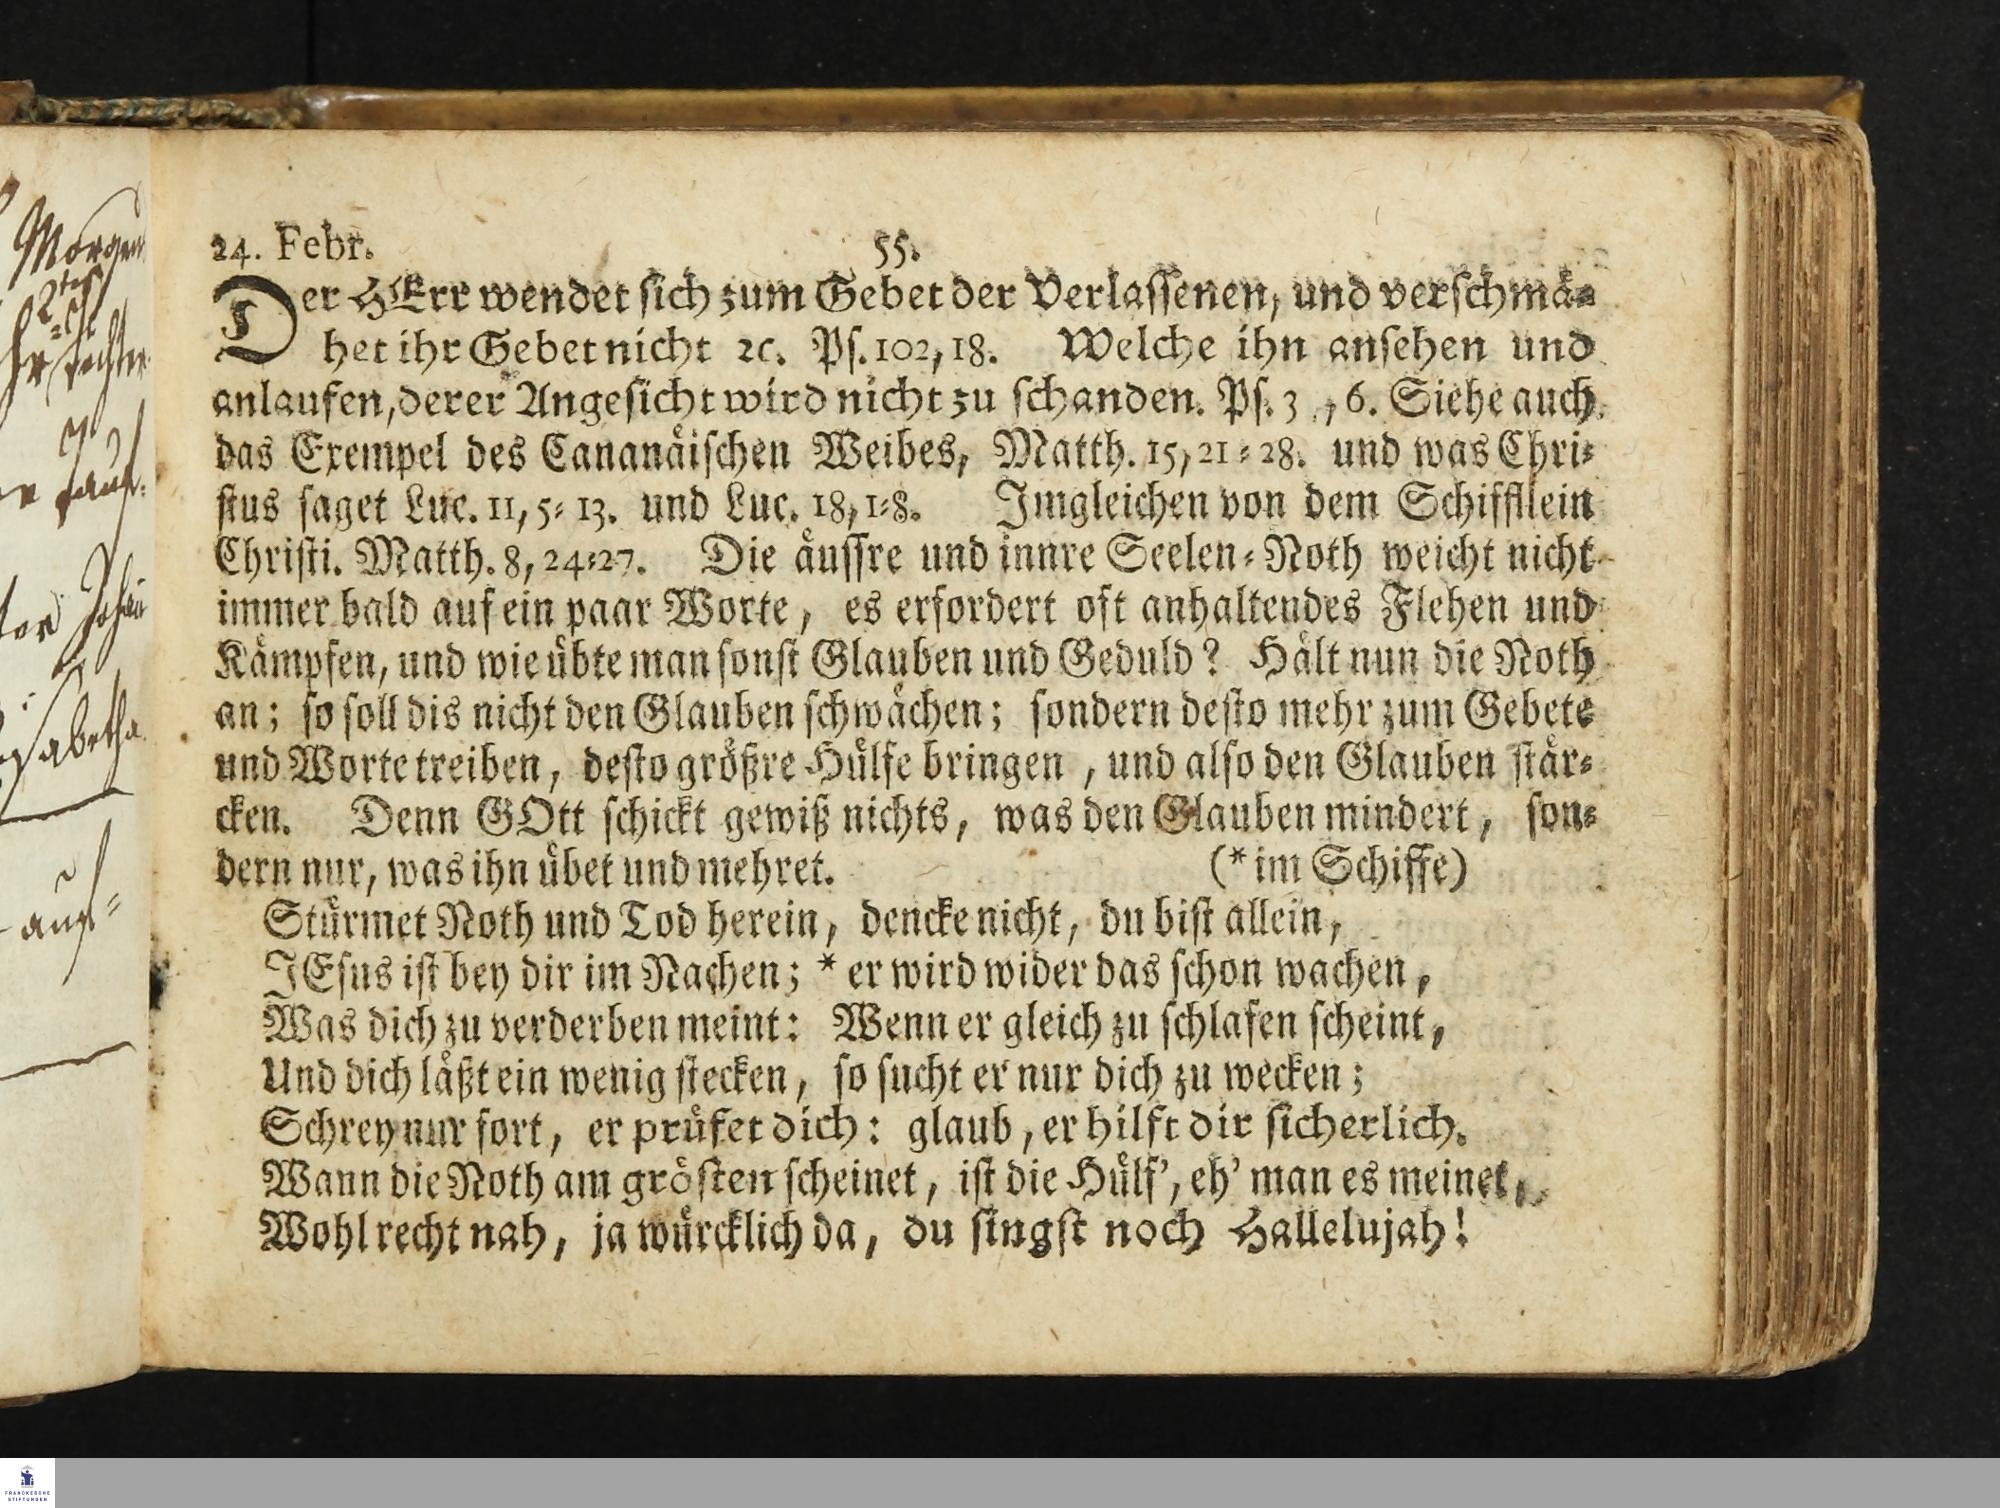 Morgen
2ten
24. Febr. 55.
Der HErr wendet sich zum Gebet der Verlassenen, und verschmä-
het ihr Gebet nicht ꝛc. Ps. 102, 18. Welche ihn ansehen und
anlaufen, derer Angesicht wird nicht zu schanden. Ps. 3 , 6. Siehe auch
das Exempel des Cananäischen Weibes, Matth. 15, 21-28. und was Chri-
stus saget Luc. 11, 5-13. und Luc. 18, 1-8. Imgleichen von dem Schifflein
Christi. Matth. 8, 24-27. Die äussre und innre Seelen-Noth weicht nicht
immer bald auf ein paar Worte, es erfordert oft anhaltendes Flehen und
Kämpfen, und wie übte man sonst Glauben und Geduld? Hält nun die Noth
an; so soll dis nicht den Glauben schwächen; sondern desto mehr zum Gebete
und Worte treiben, desto größre Hülfe bringen, und also den Glauben stär-
cken. Denn GOtt schickt gewiß nichts, was den Glauben mindert, son-
dern nur, was ihn übet und mehret. (* im Schiffe)
Stürmet Noth und Tod herein, dencke nicht, du bist allein,
JEsus ist bey dir im Nachen; * er wird wider das schon wachen,
Was dich zu verderben meint: Wenn er gleich zu schlafen scheint,
Und dich läßt ein wenig stecken, so sucht er nur dich zu wecken;
Schrey nur fort, er prüfet dich: glaub, er hilft dir sicherlich.
Wann die Noth am grösten scheinet, ist die Hülf', eh' man es meinet,
Wohl recht nah, ja würcklich da, du singst noch Hallelujah!
FRANCKESCHE
STIFTUNGEN